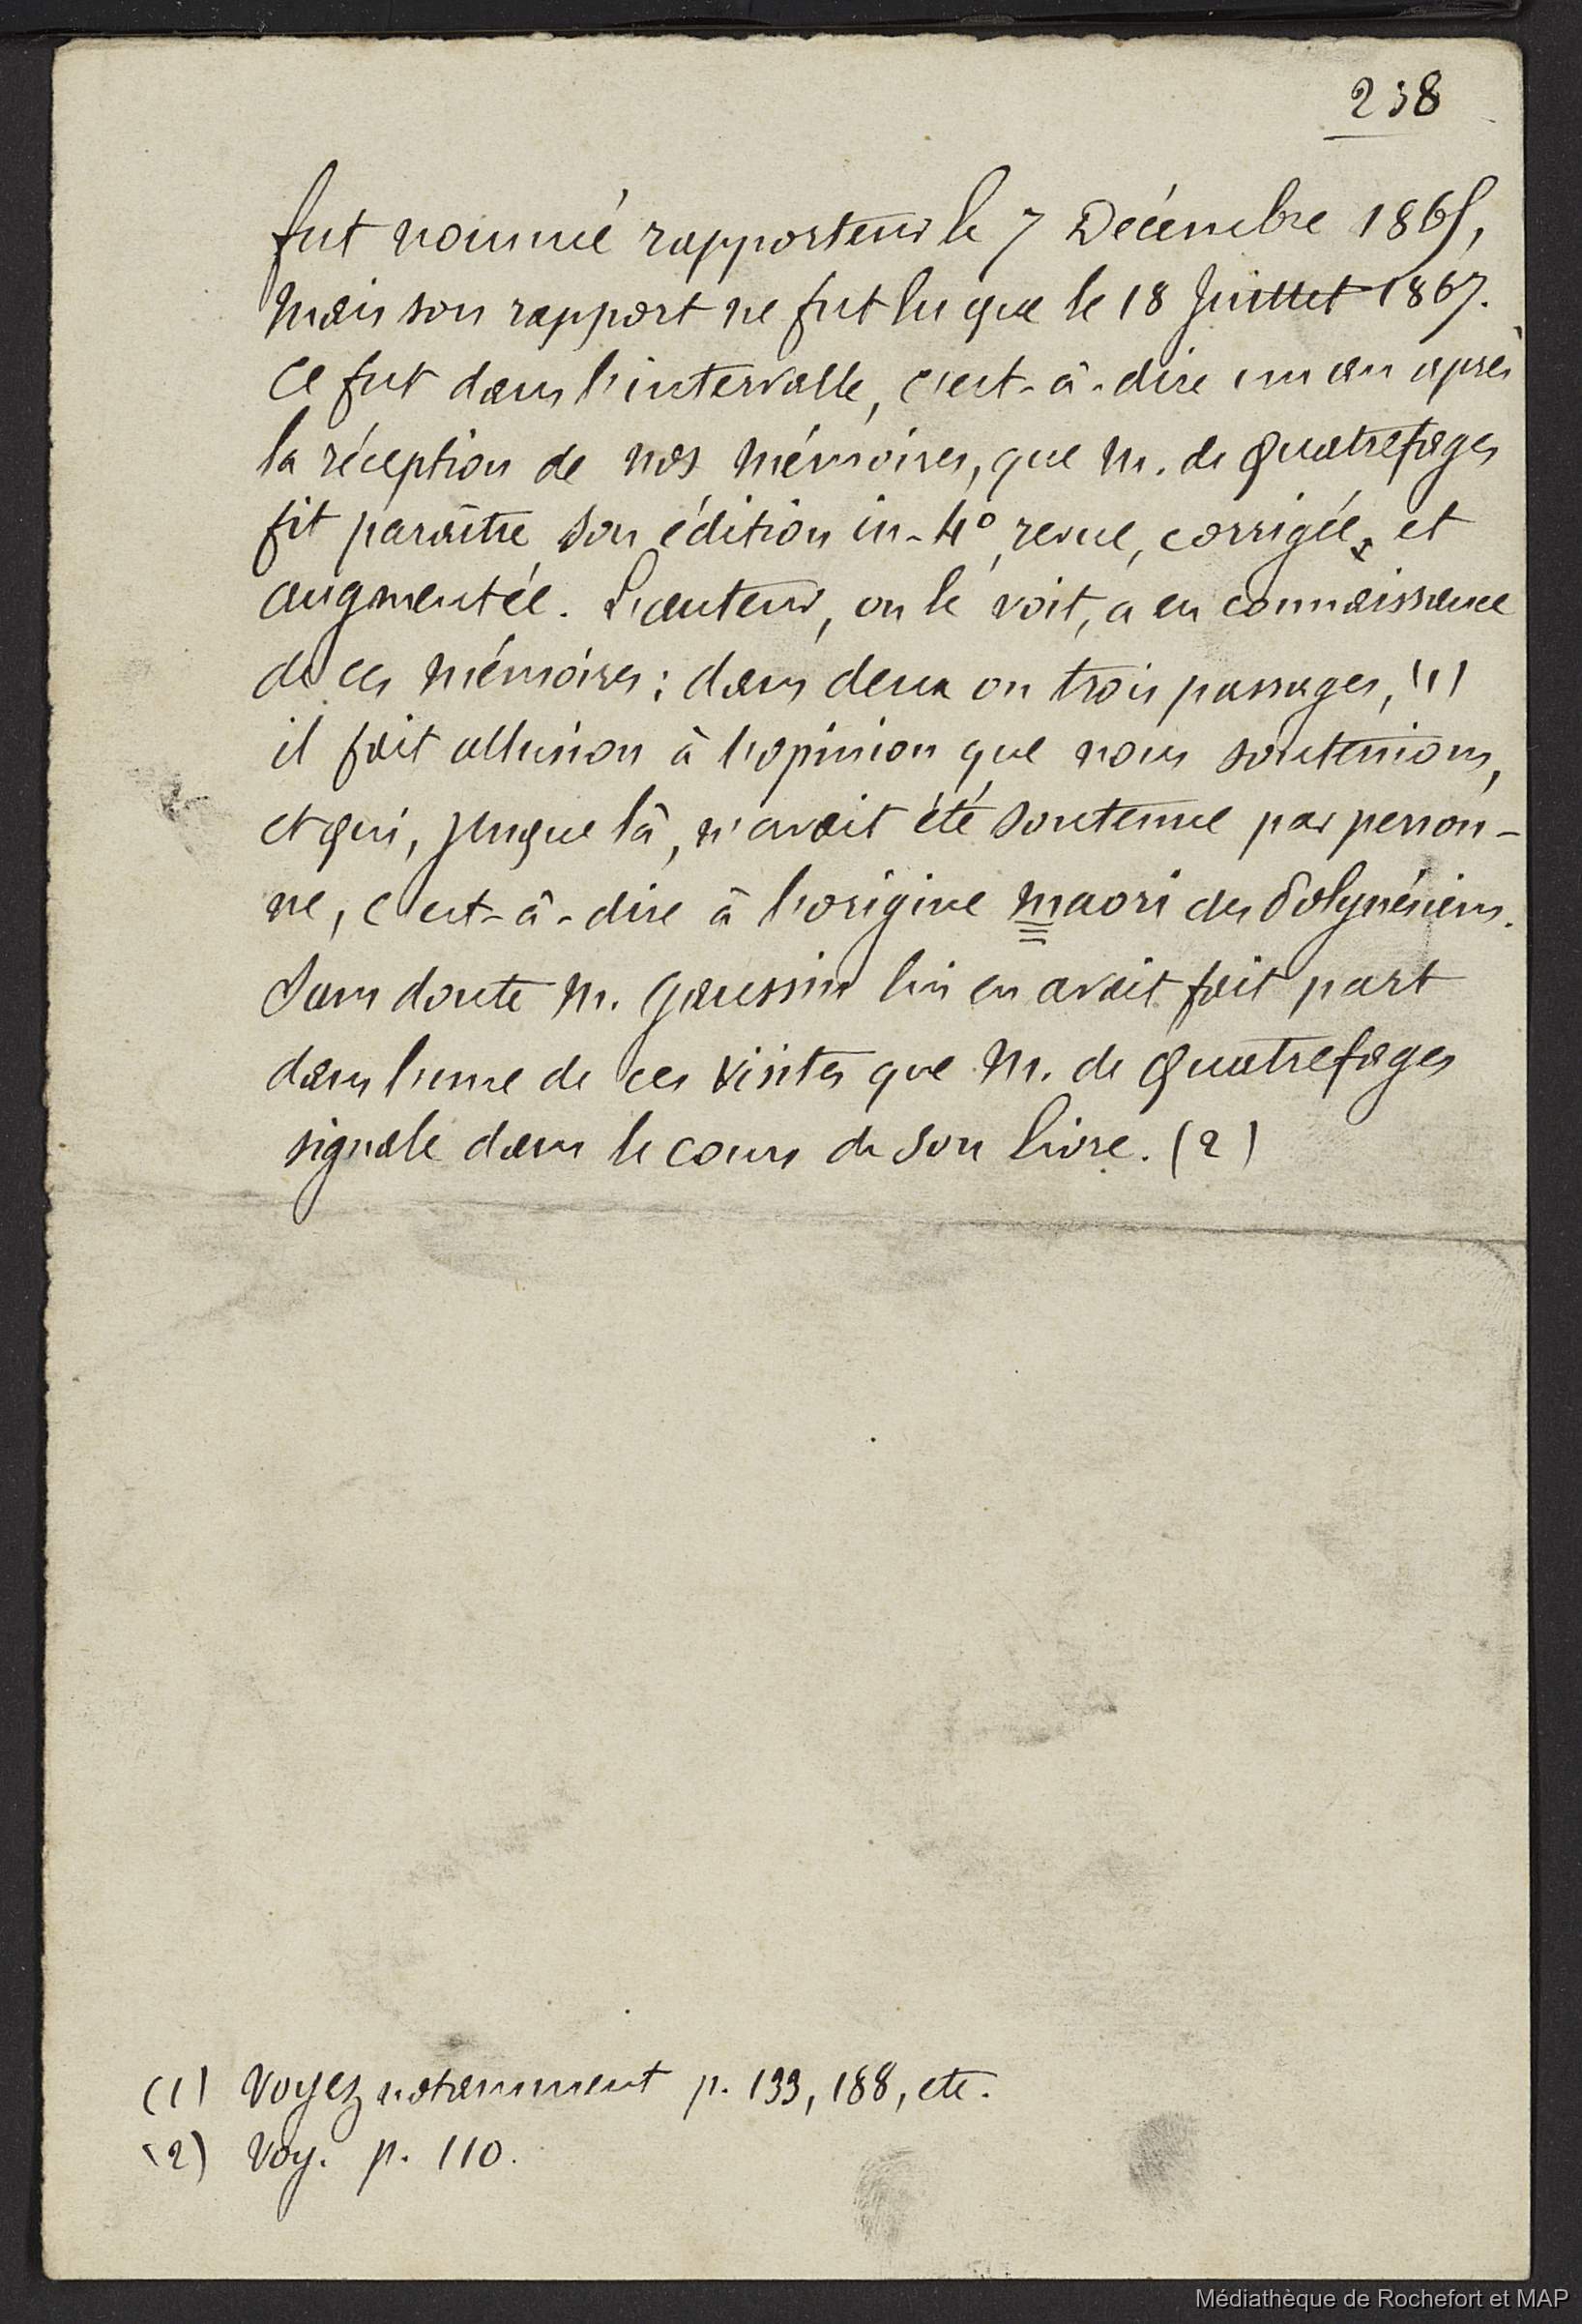 238
fut nommé rapporteur le 7 Décembre 1865,
Mais son rapport ne fut lu que le 18 Juillet 1867.
Ce fut dans l'intervalle, c'est-à-dire un an après
la réception de nos mémoires, que M. de Quatrefages
fit paraître son édition in-4°, revue, corrigée, et
augmentée. L'auteur, on le voit, a eu connaissance
de ces mémoires: dans deux ou trois passages, (1)
il fait allusion à l'opinion que nous soutenions,
et qui, jusque là, n'avait été soutenue par person-
ne, c'est-à-dire à l'origine maori des Polynésiens.
Sans doute M. Gaussin lui en avait fait part
dans l'une de ces visites que M. de Quatrefages
signale dans le cours de son livre. (2)
(1) Voyez notamment p. 133, 188, etc.
(2) Voy. p. 110.
Médiathèque de Rochefort et MAP